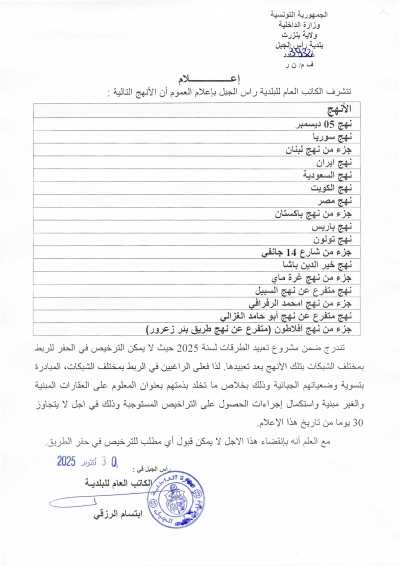 الجمهورية التونسية
وزارة الداخلية
ولاية بنزرت
بلدية راس الجبل
ف م/ ن ر
إعـــــــــلام
تتشرف الكاتب العام للبلدية راس الجبل بإعلام العموم أن الأنهج التالية :
الأنهج
نهج 05 ديسمبر
نهج سوريا
جزء من نهج لبنان
نهج ايران
نهج السعودية
نهج الكويت
نهج مصر
جزء من نهج باكستان
نهج باريس
نهج تولون
جزء من شارع 14 جانفي
نهج خير الدين باشا
جزء من نهج غرة ماي
نهج متفرع عن نهج السبيل
جزء من نهج امحمد الرفرافي
نهج متفرع عن نهج أبو حامد الغزالي
جزء من نهج إفلاطون (متفرع عن نهج طريق بئر زعرور)
تندرج ضمن مشروع تعبيد الطرقات لسنة 2025 حيث لا يمكن الترخيص في الحفر للربط
بمختلف الشبكات بتلك الأنهج بعد تعبيدها. لذا فعلى الراغبين في الربط بمختلف الشبكات، المبادرة
بتسوية وضعياتهم الجبائية وذلك بخلاص ما تخلد بذمتهم بعنوان المعلوم على العقارات المبنية
والغير مبنية واستكمال إجراءات الحصول على التراخيص المستوجبة وذلك في اجل لا يتجاوز
30 يوما من تاريخ هذا الإعلام.
مع العلم أنه بإنقضاء هذا الاجل لا يمكن قبول أي مطلب للترخيص في حفر الطريق.
راس الجبل في : 30 أكتوبر 2025
الكاتب العام للبلدية
ابتسام الرزقي